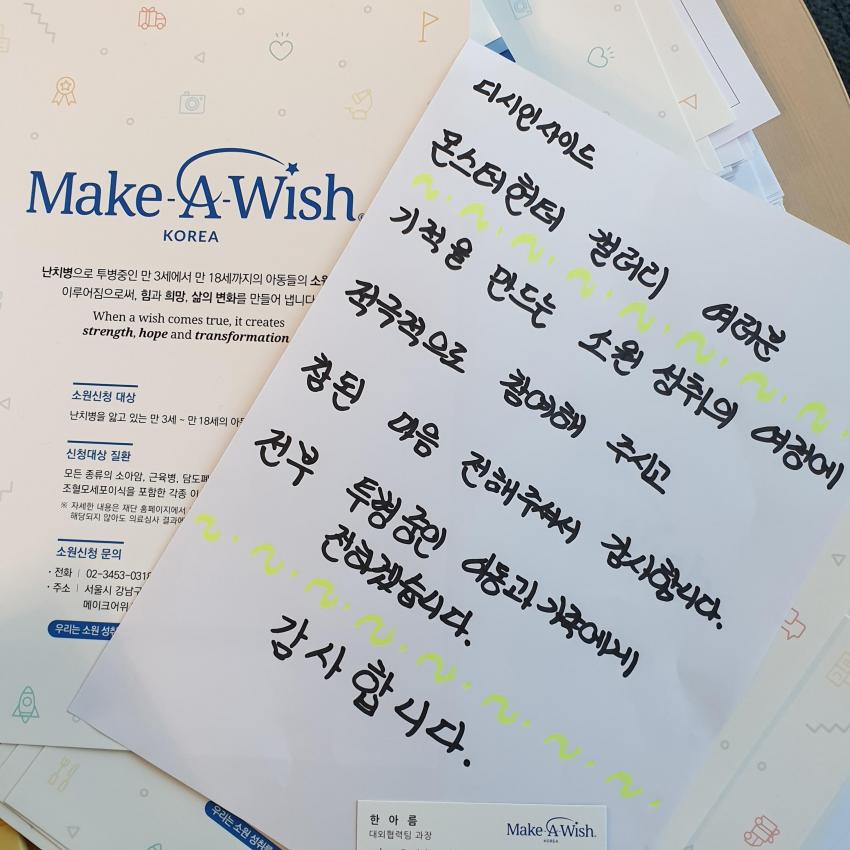 Make-A-Wish®
KOREA
난치병으로 투병중인 만 3세에서 만 18세까지의 아동들의 소원
이루어짐으로써, 힘과 희망, 삶의 변화를 만들어 냅니다
When a wish comes true, it creates
strength, hope and transformation
소원신청 대상
난치병을 앓고 있는 만 3세 ~ 만 18세의 아동
신청대상 질환
모든 종류의 소아암, 근육병, 담도폐
조혈모세포이식을 포함한 각종 이
※ 자세한 내용은 재단 홈페이지에서
해당되지 않아도 의료심사 결과에
소원신청 문의
· 전화 | 02-3453-0318
· 주소 | 서울시 강남구
메이크어위
우리는 소원 성취
디시인사이드
몬스터헌터 갤러리 여러분
기적을 만드는 소원 성취의 여정에
적극적으로 참여해 주시고
참된 마음 전해주셔서 감사합니다.
전부 투병중인 아동과 가족에게
전하겠습니다.
감사합니다.
우리는 소원 성취를
한아름
대외협력팀 과장
Make-A-Wish.
KOREA